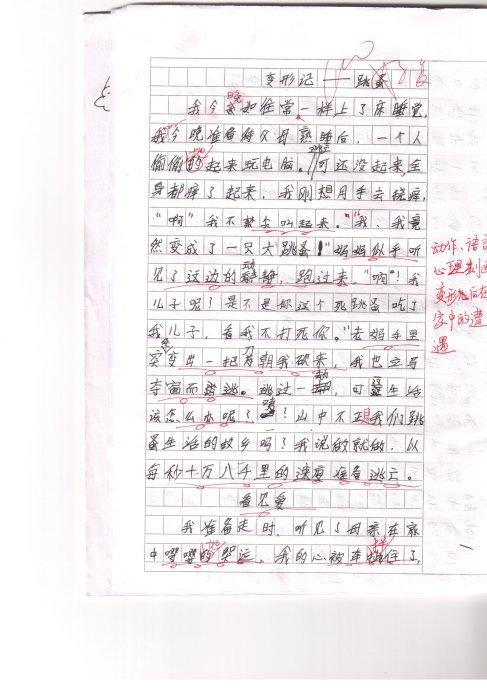 变形记——跳蚤
我今晚如往常一样上了床睡觉,
我今晚准备待父母熟睡后,一个人
偷偷地起来玩电脑。可还没起来全
身都痒了起来,我刚想用手去挠痒,
“啊”我不禁大叫起来。“我、我竟
然变成了一只大跳蚤!”妈妈似乎听
见了这边的动静,跑过来,“啊!我
儿子呢?是不是你这个死跳蚤吃了
我儿子,看我不打死你。”老妈手里
突变出一把刀朝我砍来,我也立马
夺窗而逃。逃过一劫,可是生活
该怎么办呢?山中不正是我们跳
蚤生活的故乡吗?我说做就做,以
每秒十万八千里的速度准备逃亡。
看见爱
我准备走时,听见了母亲在家
中嘤嘤地哭泣,我的心被牵绊住了,
动作、语言
心理刻画
变形后在
家中的遭
遇